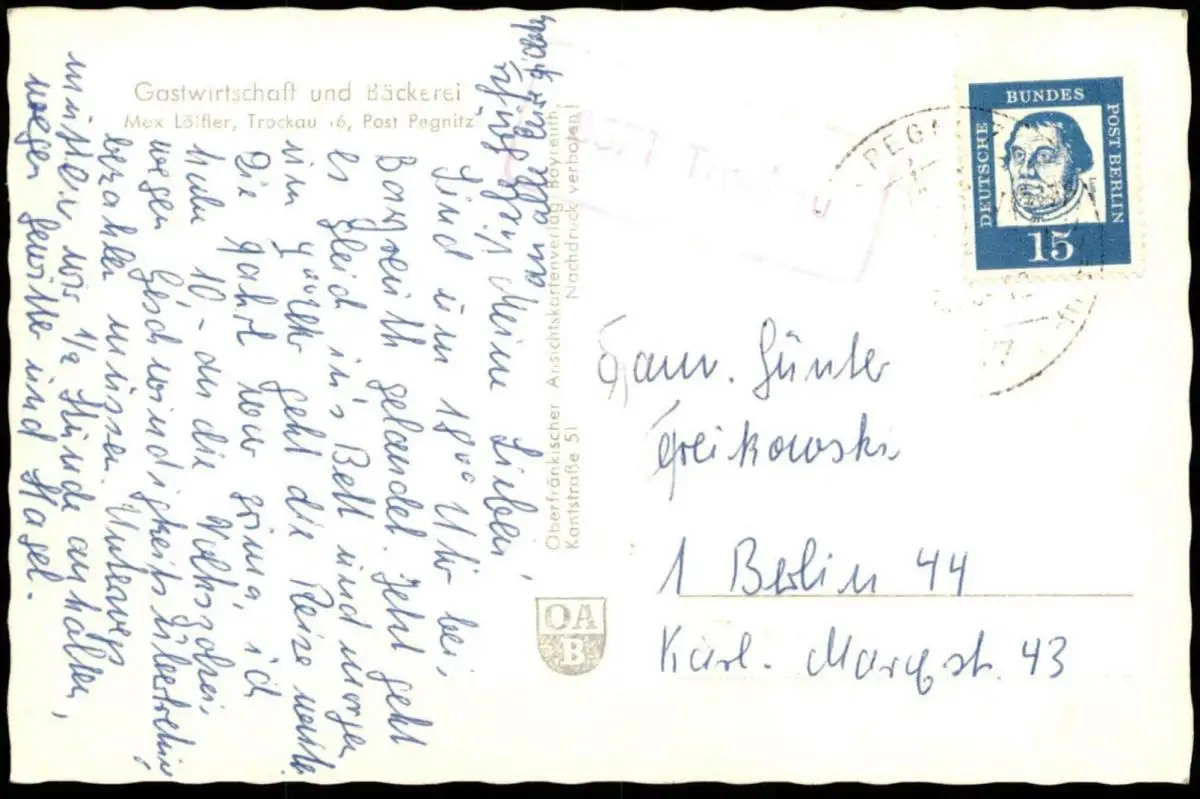 Gastwirtschaft und Bäckerei
Max Löffler, Trockau 16, Post Pegnitz
Meine Lieben,
Sind um 18°° Uhr bei
Bayreuth gelandet. Jetzt geht
es gleich in's Bett und morgen
um geht die Reise weiter.
Die Fahrt war prima, ich
habe 10,- an die Volkspolizei
wegen Geschwindigkeitsübertretung
bezahlen müssen. Unterwegs
mußten wir 1/2 Stunde anhalten,
wegen Gewitter und Hagel.
an alle
Oberfränkischer Ansichtskartenverlag Bayreuth
Kantstraße 51
Nachdruck verboten!
OA
B
DEUTSCHE
BUNDES
POST BERLIN
Luther
15
PEG
Fam. Günter
Greikowski
1 Berlin 44
Karl-Marxstr. 43